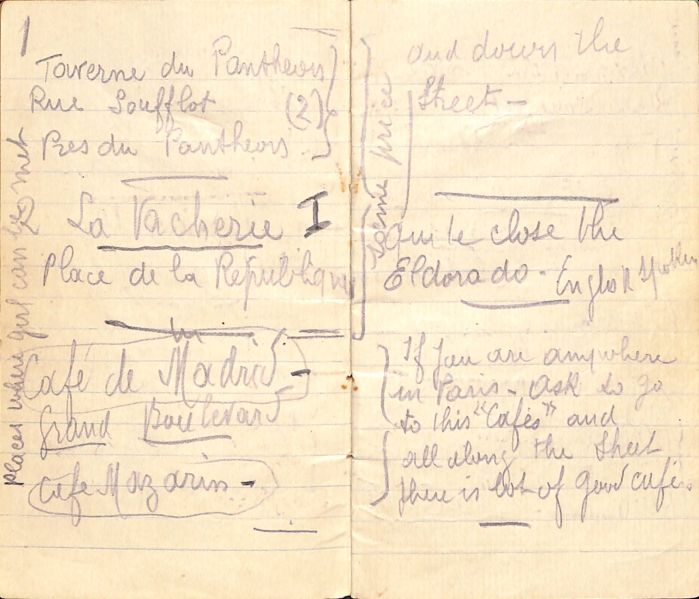 1
Taverne du Pantheon
Rue Soufflot (2)
Pres du Pantheon
2 La Vacherie I
Place de la Republique
Café de Madrid -
Grand Boulevard
Cafe Mazarin -
places where girl can be met
and down the
Street -
same price
quite close the
Eldorado - English Spoken
If you are anywhere
in Paris - ask to go
to this "Cafés" and
all along the Street
there is lot of good café.